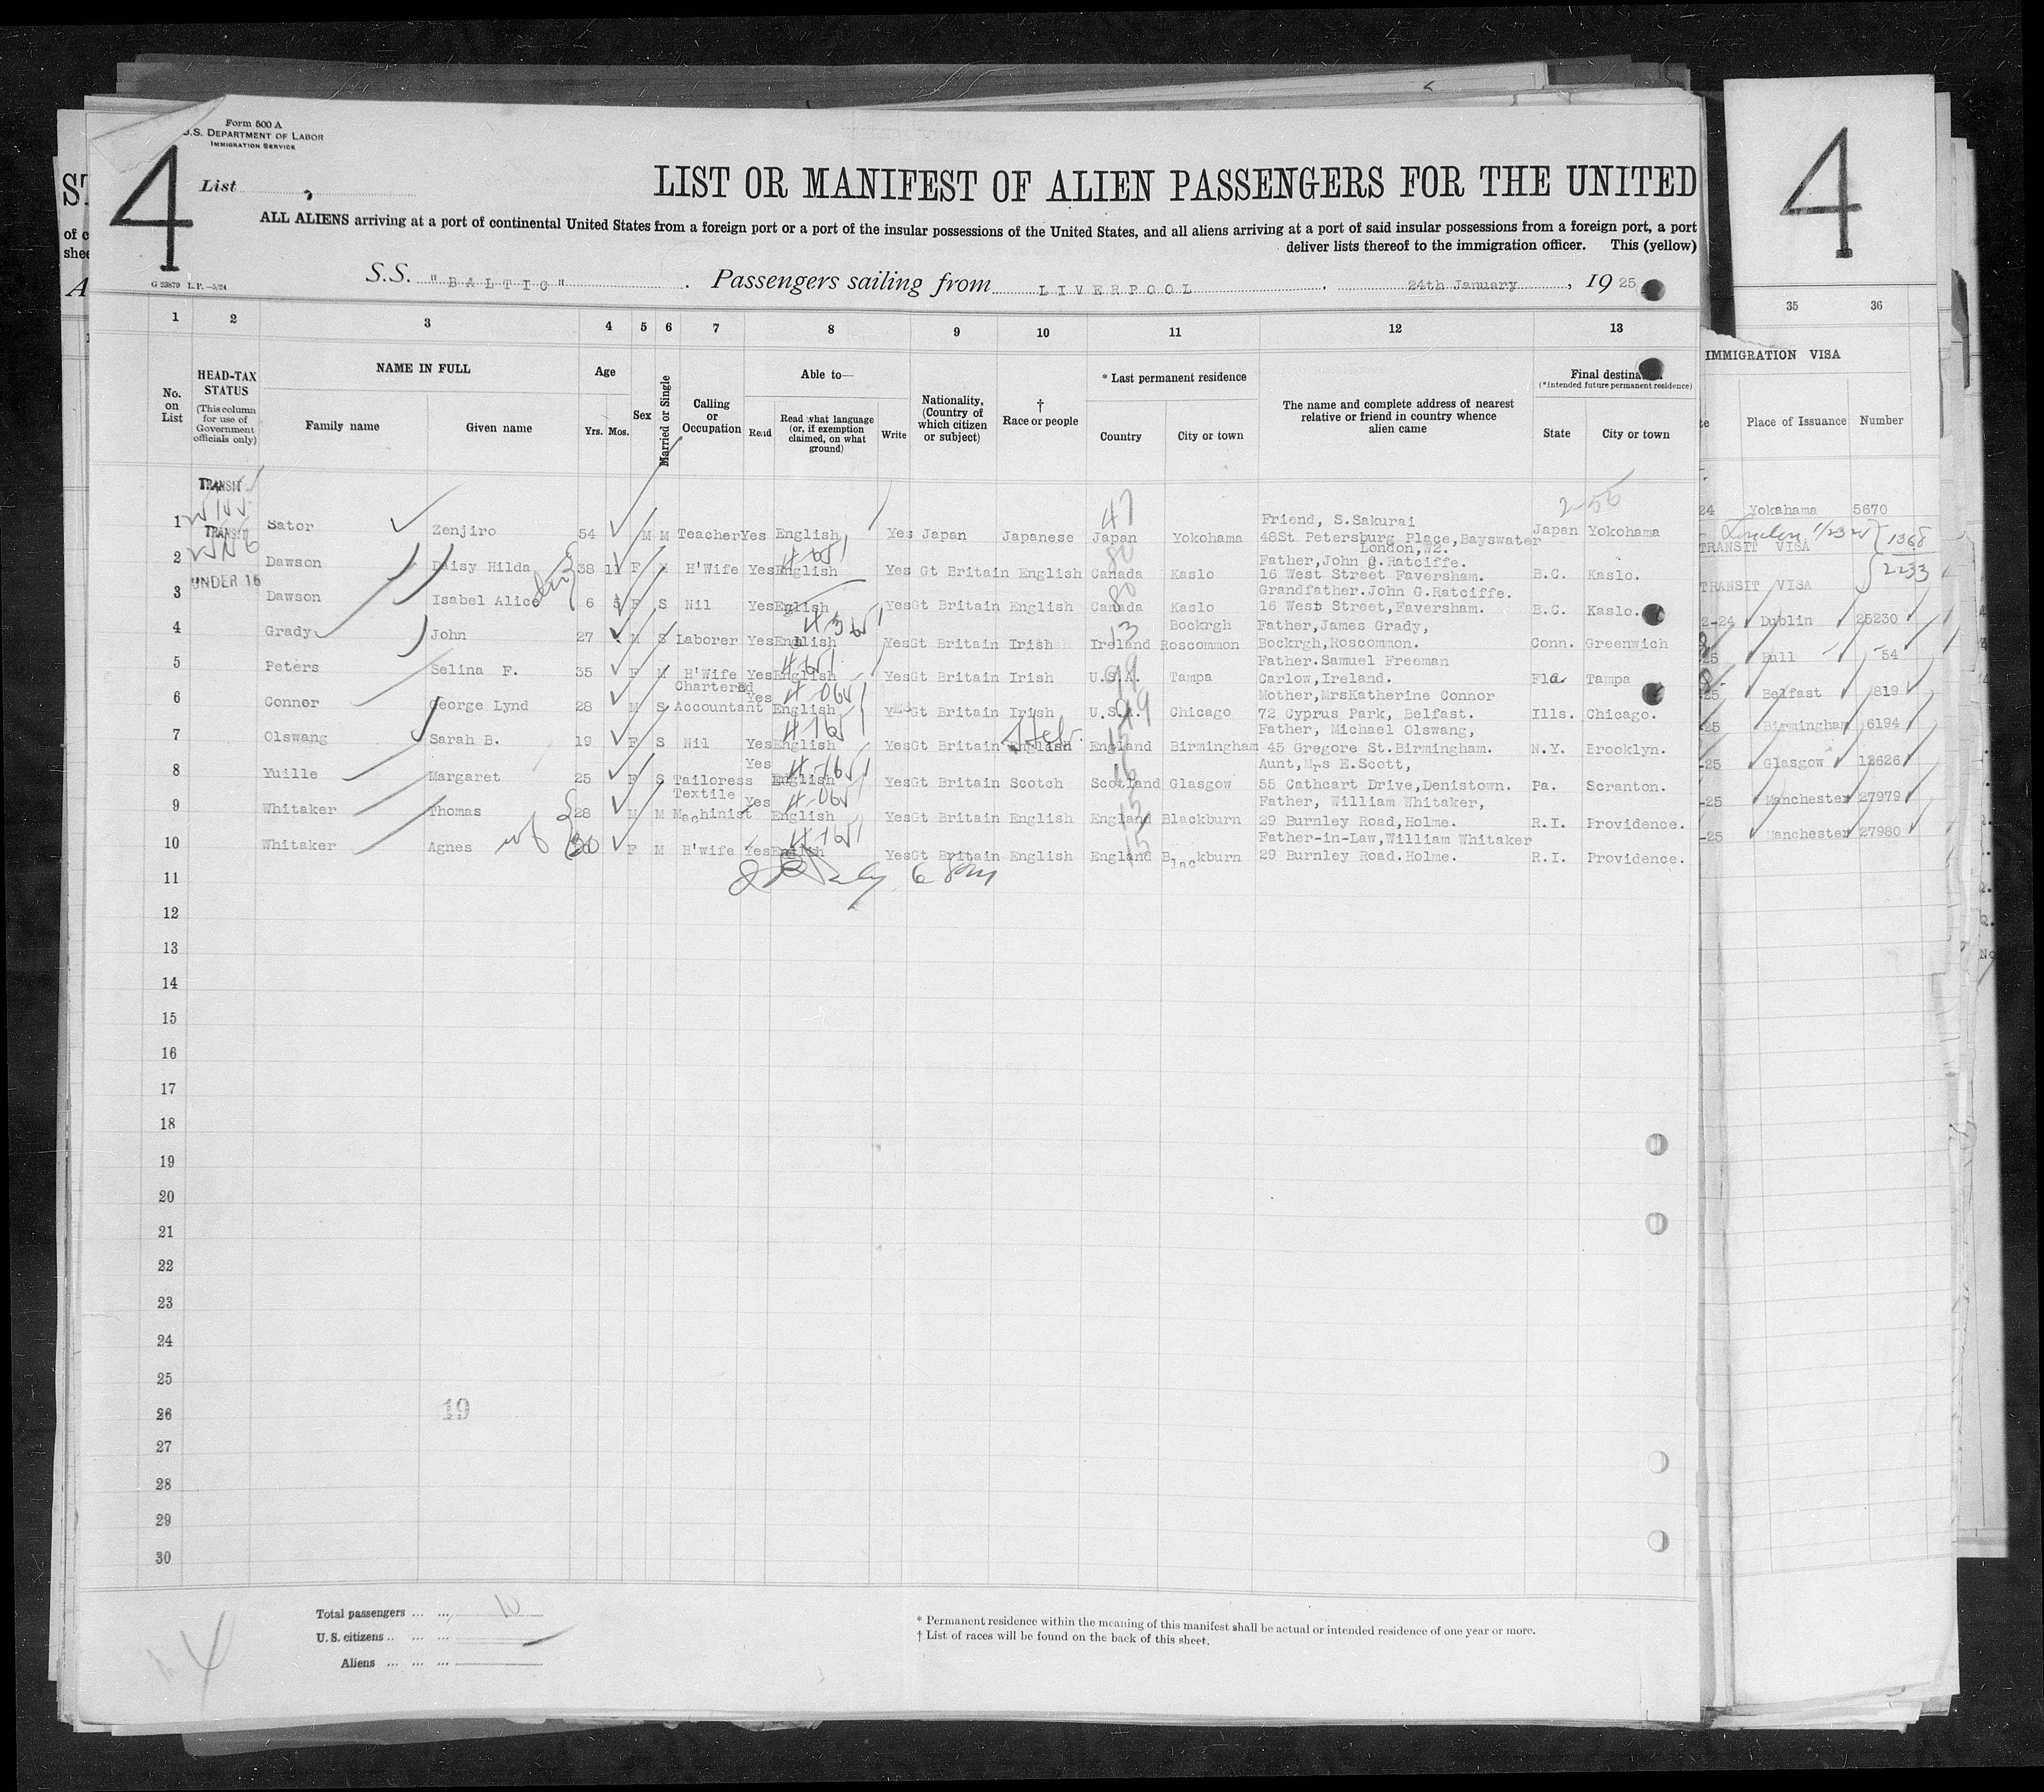 Form 500 A
U.S. DEPARTMENT OF LABOR
IMMIGRATION SERVICE
4
List
LIST OR MANIFEST OF ALIEN PASSENGERS FOR THE UNITED
ALL ALIENS arriving at a port of continental United States from a foreign port or a port of the insular possessions of the United States, and all aliens arriving at a port of said insular possessions from a foreign port, a port
deliver lists thereof to the immigration officer. This (yellow)
S.S. "BALTIC" . Passengers sailing from LIVERPOOL . 24th January , 19 25
G 23879 L.P.—5/24
1 2 3 4 5 6 7 8 9 10 11 12 13
HEAD-TAX STATUS (This column for use of Government officials only)
NAME IN FULL
Age
Able to—
* Last permanent residence
Final destina
(*Intended future permanent residence)
No. on List
Family name
Given name
Yrs. Mos.
Sex
Married or Single
Calling or Occupation
Read
Read what language (or, if exemption claimed, on what ground)
Write
Nationality, (Country of which citizen or subject)
† Race or people
Country
City or town
The name and complete address of nearest relative or friend in country whence alien came
State
City or town
TRANSIT
2-56
47
Friend, S.Sakurai
1 Sator Zenjiro 54 M M Teacher Yes English Yes Japan Japanese Japan Yokohama 48St Petersburg Place,Bayswater Japan Yokohama
London,W2.
TRANSIT
80
Father,John G.Ratciffe.
2 Dawson Daisy Hilda 38 11 F M H'Wife Yes English Yes Gt Britain English Canada Kaslo 16 West Street Faversham. B.C. Kaslo.
UNDER 16
80
Grandfather.John G.Ratciffe.
3 Dawson Isabel Alice 6 5 F S Nil Yes English Yes Gt Britain English Canada Kaslo 16 West Street,Faversham. B.C. Kaslo.
13
Bockrgh Father,James Grady,
4 Grady John 27 M S Laborer Yes English Yes Gt Britain Irish Ireland Roscommon Bockrgh,Roscommon. Conn. Greenwich
99
Father.Samuel Freeman
5 Peters Selina F. 35 F M H'Wife Yes English Yes Gt Britain Irish U.S.A. Tampa Carlow,Ireland. Fla Tampa
Chartered
99
Mother,MrsKatherine Connor
6 Connor George Lynd 28 M S Accountant Yes English Yes Gt Britain Irish U.S.A. Chicago 72 Cyprus Park, Belfast. Ills. Chicago.
Hebr.
15
Father, Michael Olswang,
7 Olswang Sarah B. 19 F S Nil Yes English Yes Gt Britain English England Birmingham 45 Gregore St.Birmingham. N.Y. Brooklyn.
16
Aunt,Mrs E.Scott,
8 Yuille Margaret 25 F S Tailoress Yes English Yes Gt Britain Scotch Scotland Glasgow 55 Cathcart Drive,Denistown. Pa. Scranton.
Textile
15
Father, William Whitaker,
9 Whitaker Thomas 28 M M Machinist Yes English Yes Gt Britain English England Blackburn 29 Burnley Road,Holme. R.I. Providence.
15
Father-in-Law,William Whitaker
10 Whitaker Agnes wf 30 F M H'wife Yes English Yes Gt Britain English England Blackburn 29 Burnley Road.Holme. R.I. Providence.
11
12
13
14
15
16
17
18
19
20
21
22
23
24
25
26
19
27
28
29
30
Total passengers ... ... 10
U.S. citizens .. ... ...
Aliens ... ... ...
* Permanent residence within the meaning of this manifest shall be actual or intended residence of one year or more.
† List of races will be found on the back of this sheet.
4
4
35 36
IMMIGRATION VISA
Place of Issuance Number
24 Yokahama 5670
London 1/23 1368
TRANSIT VISA
2233
TRANSIT VISA
2-24 Dublin 25230
25 Hull 54
25 Belfast 819
-25 Birmingham 6194
-25 Glasgow 12626
-25 Manchester 27979
-25 Manchester 27980